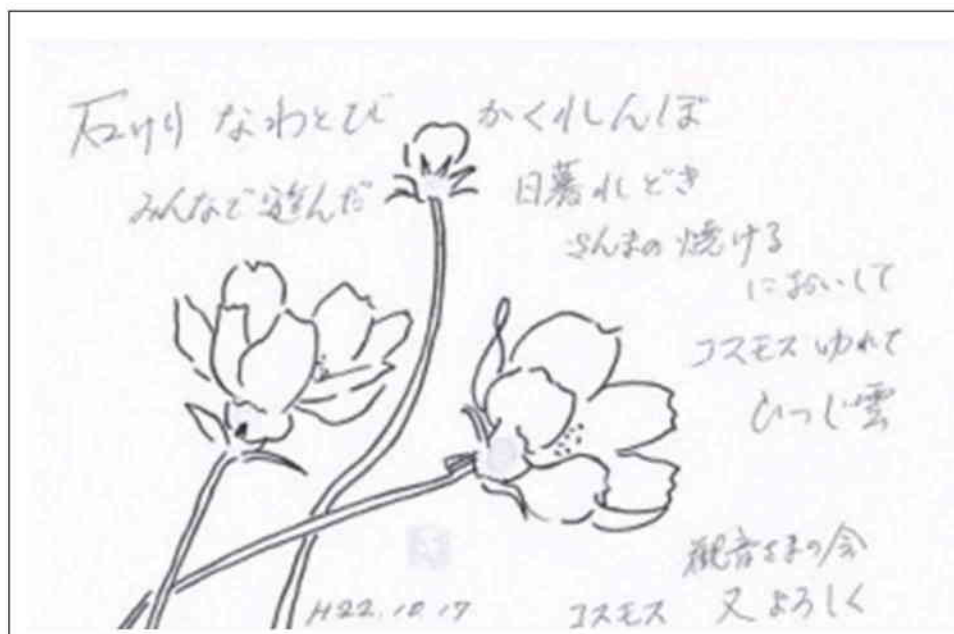 石けり なわとび かくれんぼ
みんなで遊んだ 日暮れどき
さんまの焼ける
においして
コスモスゆれて
ひつじ雲
観音さまの会
又よろしく
コスモス
H22.10.17